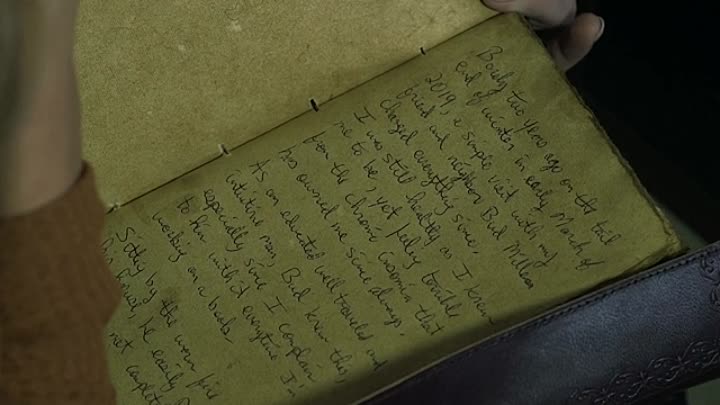 two years ago on the tail
end of winter in early March of
2019, a simple visit with my
friend and neighbor Bud
changed everything since,
I was still healthy as I knew
me to be, yet feeling terrible
from the chronic insomnia that
has owned me since always,
As an educated well traveled and
intuitive man, Bud knew this,
especially since I complain
to him with it everytime I'm
working on a book.
Sitting by the warm fire
his house, he easily
not